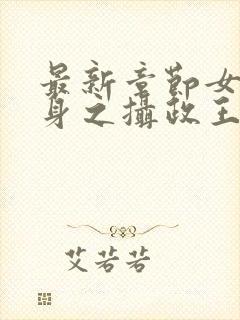 最新章節女
身之攝政王
艾若若